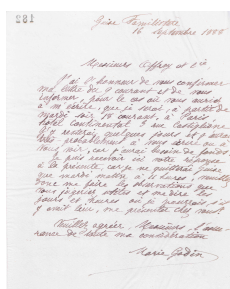 182
Guise Familistère
16 Septembre 1888
Messieurs Leffroy et Cie
J'ai l'honneur de vous confirmer
ma lettre du 9 courant et de vous
informer, pour le cas où vous auriez
à m'écrire, que je serai à partir de
mardi soir 18 courant, à Paris
hôtel Continental, rue Castiglione.
J'y resterai quelques jours et j'aurai
très probablement à vous voir
car j'aurai besoin de fonds.
Je puis recevoir ici votre réponse
à la présente, car je ne quitterai Guise
que mardi matin à 11 heures, veuillez
donc me faire les observations que
vous jugeriez utiles et me dire les
jours et heures où je pourrais, s'il
y avait lieu, me présenter chez vous.
Veuillez agréer, Messieurs, l'assu-
rance de toute ma considération
Marie Godin